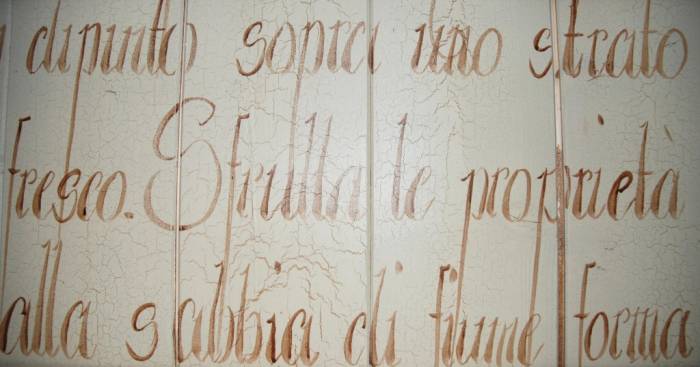 dipinto sopra uno strato
fresco. Sfrutta le proprietà
alla sabbia di fiume forma